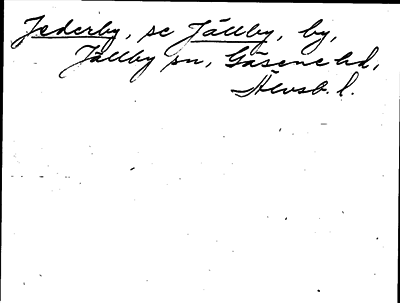 Jederby, se Jällby, by,
Jällby sn, Gäsene hd,
Älvsb. l.